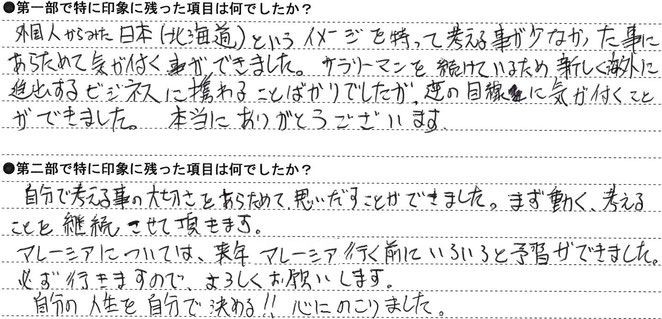 ●第一部で特に印象に残った項目は何でしたか？
外国人からみた日本（北海道）というイメージを持って考える事が少なかった事に
あらためて気が付く事ができました。サラリーマンを続けているため新しく海外に
進出するビジネスに携わることばかりでしたが、逆の目線に気が付くこと
ができました。本当にありがとうございます。
●第二部で特に印象に残った項目は何でしたか？
自分で考える事の大切さをあらためて思いだすことができました。まず動く、考える
ことを継続させて頂きます。
マレーシアについては、来年マレーシア行く前にいろいろと予習ができました。
必ず行きますので、よろしくお願いします。
自分の人生を自分で決める!! 心にのこりました。